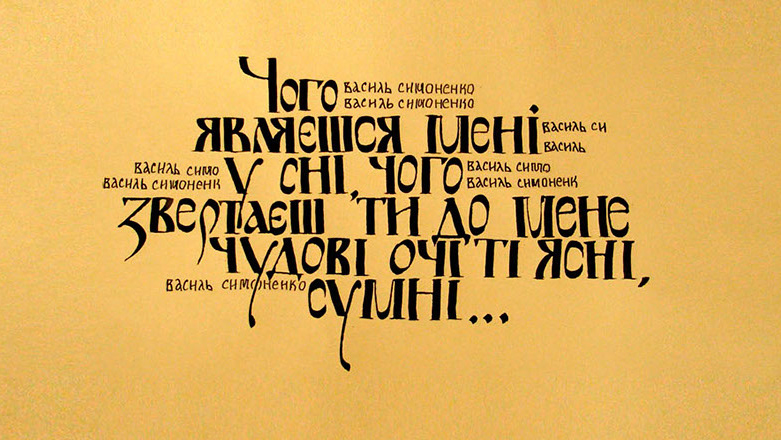 Чого
василь симоненко
василь симоненко
являєшся мені
василь си
василь
василь симо
василь симоненк
у сні, чого
василь симо
василь симоненк
звертаєш ти до мене
чудові очі ті ясні,
василь симоненко
сумні...